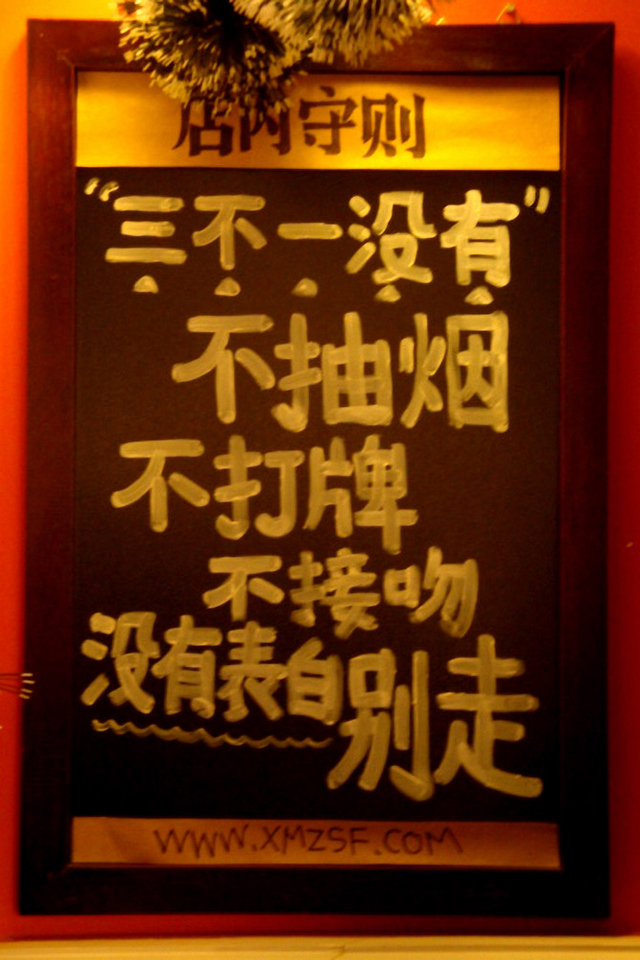 店内守则
“三不一没有”
不抽烟
不打牌
不接吻
没有表白别走
WWW.XMZSF.COM